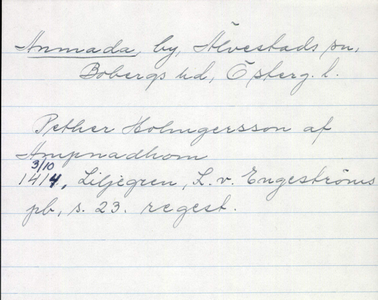 Anmada, by, Alvestads sn,
Bobergs hd, Österg. l.
Pether Holmgersson af
Ampnadhom
3/10
1414, Liljegren, L. v. Engeströms
pb, s. 23. regest.